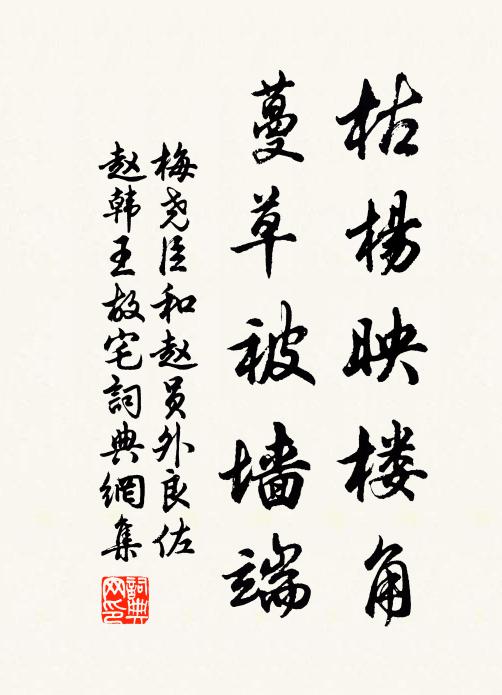 枯楊映楼角
蔓草被墙端
梅尧臣和赵员外良佐
赵韩王故宅詞典網集
詞典
网印